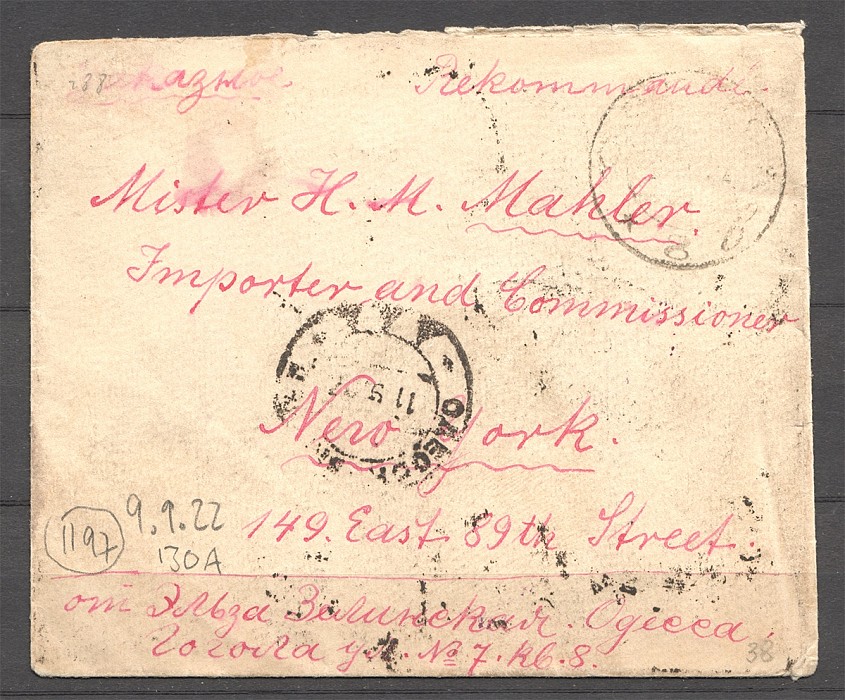 288 Заказное. Rekommandé.
Mister H. M. Mahler.
Importer and Commissioner
11 9
ОДЕССА
New York.
9.9.22
1197
130A
149. East 89th Street.
от Эльза Залинская. Одесса,
Гоголя ул. № 7. кв. 8.
38